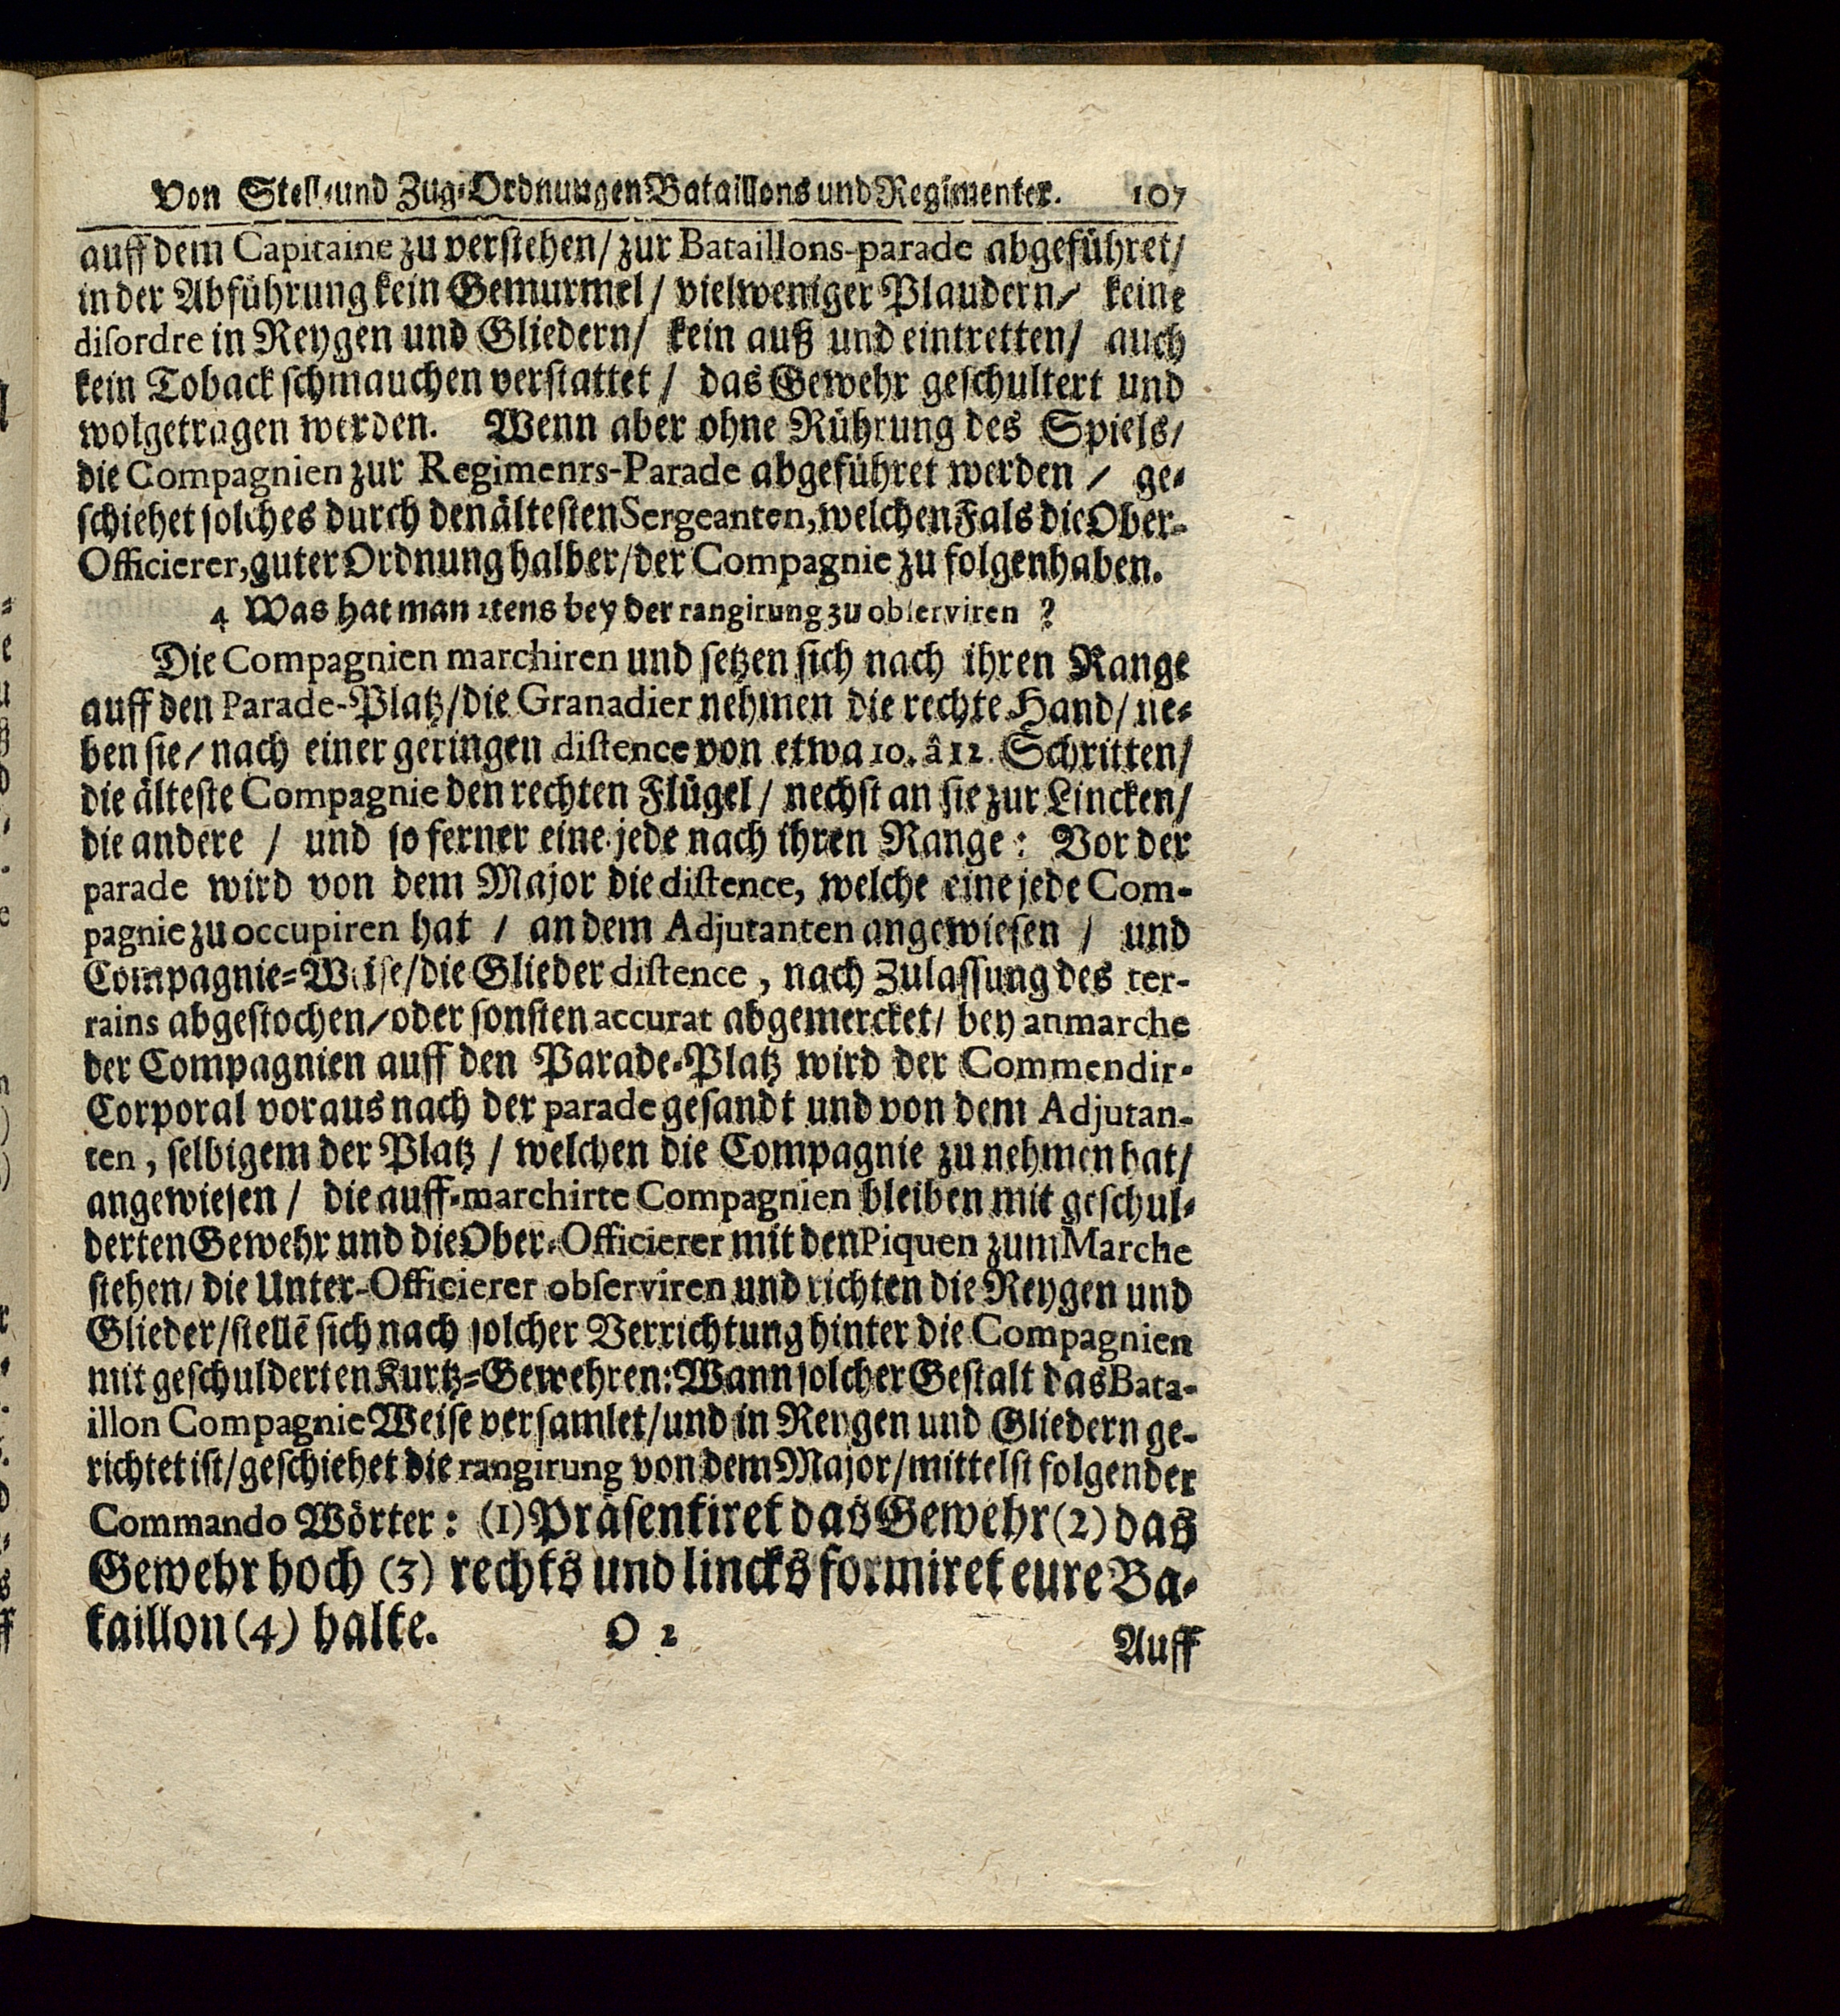 Von Stell-und Zug-Ordnungen Bataillons und Regimenter. 107
auff dem Capitaine zu verstehen/ zur Bataillons-parade abgeführet/
in der Abführung kein Gemurmel / vielweniger Plaudern/ keine
disordre in Reygen und Gliedern/ kein auß und eintretten/ auch
kein Toback schmauchen verstattet / das Gewehr geschultert und
wolgetragen werden. Wenn aber ohne Rührung des Spiels/
die Compagnien zur Regimenrs-Parade abgeführet werden / ge-
schiehet solches durch den ältesten Sergeanten, welchen Fals die Ober-
Officierer, guter Ordnung halber/der Compagnie zu folgen haben.
4 Was hat man 2tens bey der rangirung zu observiren ?
Die Compagnien marchiren und setzen sich nach ihren Range
auff den Parade-Platz/die Granadier nehmen die rechte Hand/ ne-
ben sie/ nach einer geringen distence von etwa 10. â 12. Schritten/
die älteste Compagnie den rechten Flügel / nechst an sie zur Lincken/
die andere / und so ferner eine jede nach ihren Range: Vor der
parade wird von dem Major die distence, welche eine jede Com-
pagnie zu occupiren hat / an dem Adjutanten angewiesen / und
Compagnie-Weise/die Glieder distence, nach Zulassung des ter-
rains abgestochen/oder sonsten accurat abgemercket/ bey anmarche
der Compagnien auff den Parade-Platz wird der Commendir-
Corporal voraus nach der parade gesandt und von dem Adjutan-
ten, selbigem der Platz / welchen die Compagnie zu nehmen hat/
angewiesen / die auff-marchirte Compagnien bleiben mit geschul-
derten Gewehr und die Ober-Officierer mit den Piquen zum Marche
stehen/ die Unter-Officierer observiren und richten die Reygen und
Glieder/stellē sich nach solcher Verrichtung hinter die Compagnien
mit geschulderten Kurtz-Gewehren: Wann solcher Gestalt das Bata-
illon Compagnie Weise versamlet/und in Reygen und Gliedern ge-
richtet ist/geschiehet die rangirung von dem Major/mittelst folgender
Commando Wörter: (1) Präsentiret das Gewehr (2) das
Gewehr hoch (3) rechts und lincks formiret eure Ba-
taillon (4) halte. O 2
Auff